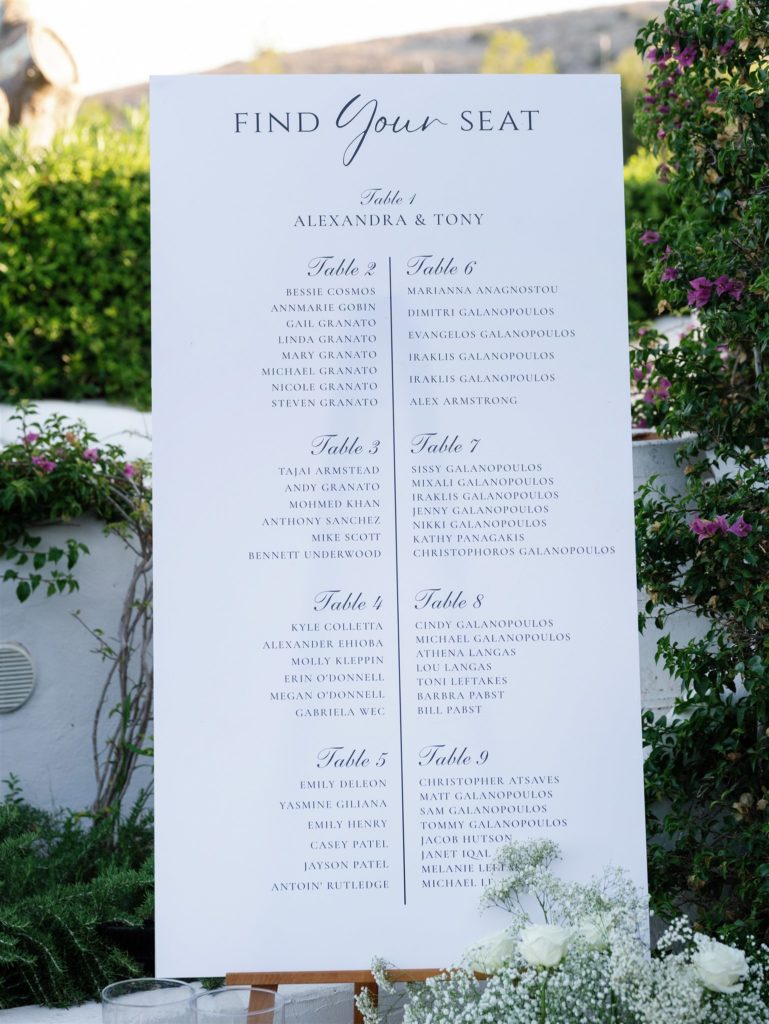 FIND Your SEAT
Table 1
ALEXANDRA & TONY
Table 2
BESSIE COSMOS
ANNMARIE GOBIN
GAIL GRANATO
LINDA GRANATO
MARY GRANATO
MICHAEL GRANATO
NICOLE GRANATO
STEVEN GRANATO
Table 3
TAJAI ARMSTEAD
ANDY GRANATO
MOHMED KHAN
ANTHONY SANCHEZ
MIKE SCOTT
BENNETT UNDERWOOD
Table 4
KYLE COLLETTA
ALEXANDER EHIOBA
MOLLY KLEPPIN
ERIN O'DONNELL
MEGAN O'DONNELL
GABRIELA WEC
Table 5
EMILY DELEON
YASMINE GILIANA
EMILY HENRY
CASEY PATEL
JAYSON PATEL
ANTOIN' RUTLEDGE
Table 6
MARIANNA ANAGNOSTOU
DIMITRI GALANOPOULOS
EVANGELOS GALANOPOULOS
IRAKLIS GALANOPOULOS
IRAKLIS GALANOPOULOS
ALEX ARMSTRONG
Table 7
SISSY GALANOPOULOS
MIXALI GALANOPOULOS
IRAKLIS GALANOPOULOS
JENNY GALANOPOULOS
NIKKI GALANOPOULOS
KATHY PANAGAKIS
CHRISTOPHOROS GALANOPOULOS
Table 8
CINDY GALANOPOULOS
MICHAEL GALANOPOULOS
ATHENA LANGAS
LOU LANGAS
TONI LEFTAKES
BARBRA PABST
BILL PABST
Table 9
CHRISTOPHER ATSAVES
MATT GALANOPOULOS
SAM GALANOPOULOS
TOMMY GALANOPOULOS
JACOB HUTSON
JANET IQAL
MELANIE
MICHAEL